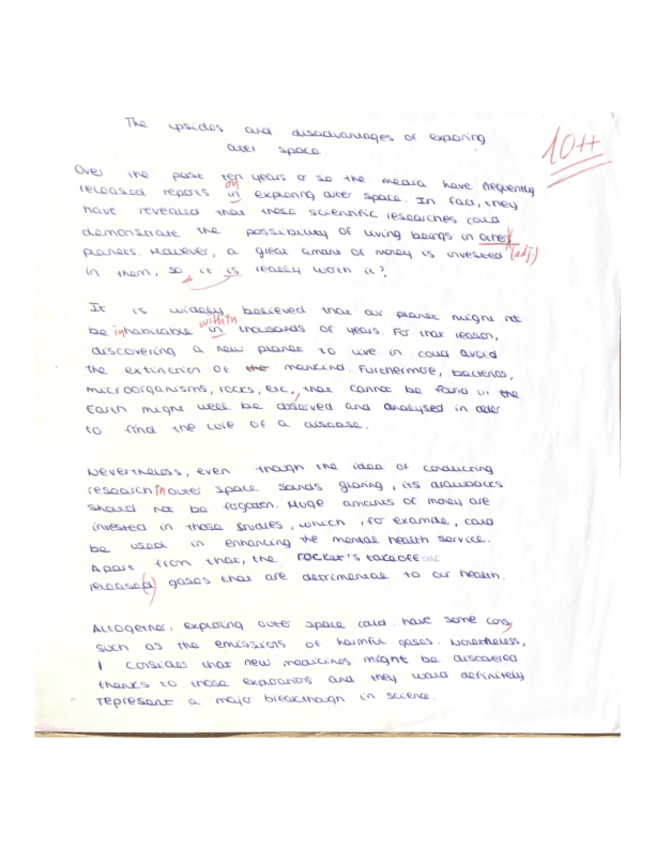 The upsides and disadvantages of exploring
outer space
10++
Over the past ten years or so the media have frequently
released reports on in exploring outer space. In fact, they
have revealed that these scientific researches could
demonstrate the possibility of living beings in others
planets. However, a great amount of money is invested (adj.)
in them, so it is really worth it?
It is widely believed that our planet might not
be inhabitable within in thousands of years. For that reason,
discovering a new planet to live in could avoid
the extinction of the mankind. Furthermore, bacterias,
microorganisms, rocks, etc., that cannot be found in the
Earth might well be observed and analysed in order
to find the cure of a disease.
Nevertheless, even though the idea of conducting
research in outer space sounds glaring, its drawbacks
should not be forgotten. Huge amounts of money are
invested in those studies, which, for example, could
be used in enhancing the mental health service.
Apart from that, the rocket's takeoff
released gases that are detrimental to our health.
Altogether, exploring outer space could have some cons,
such as the emissions of harmful gases. Nonetheless,
I consider that new medicines might be discovered
thanks to those explorations and they would definitely
represent a major breakthough in science.